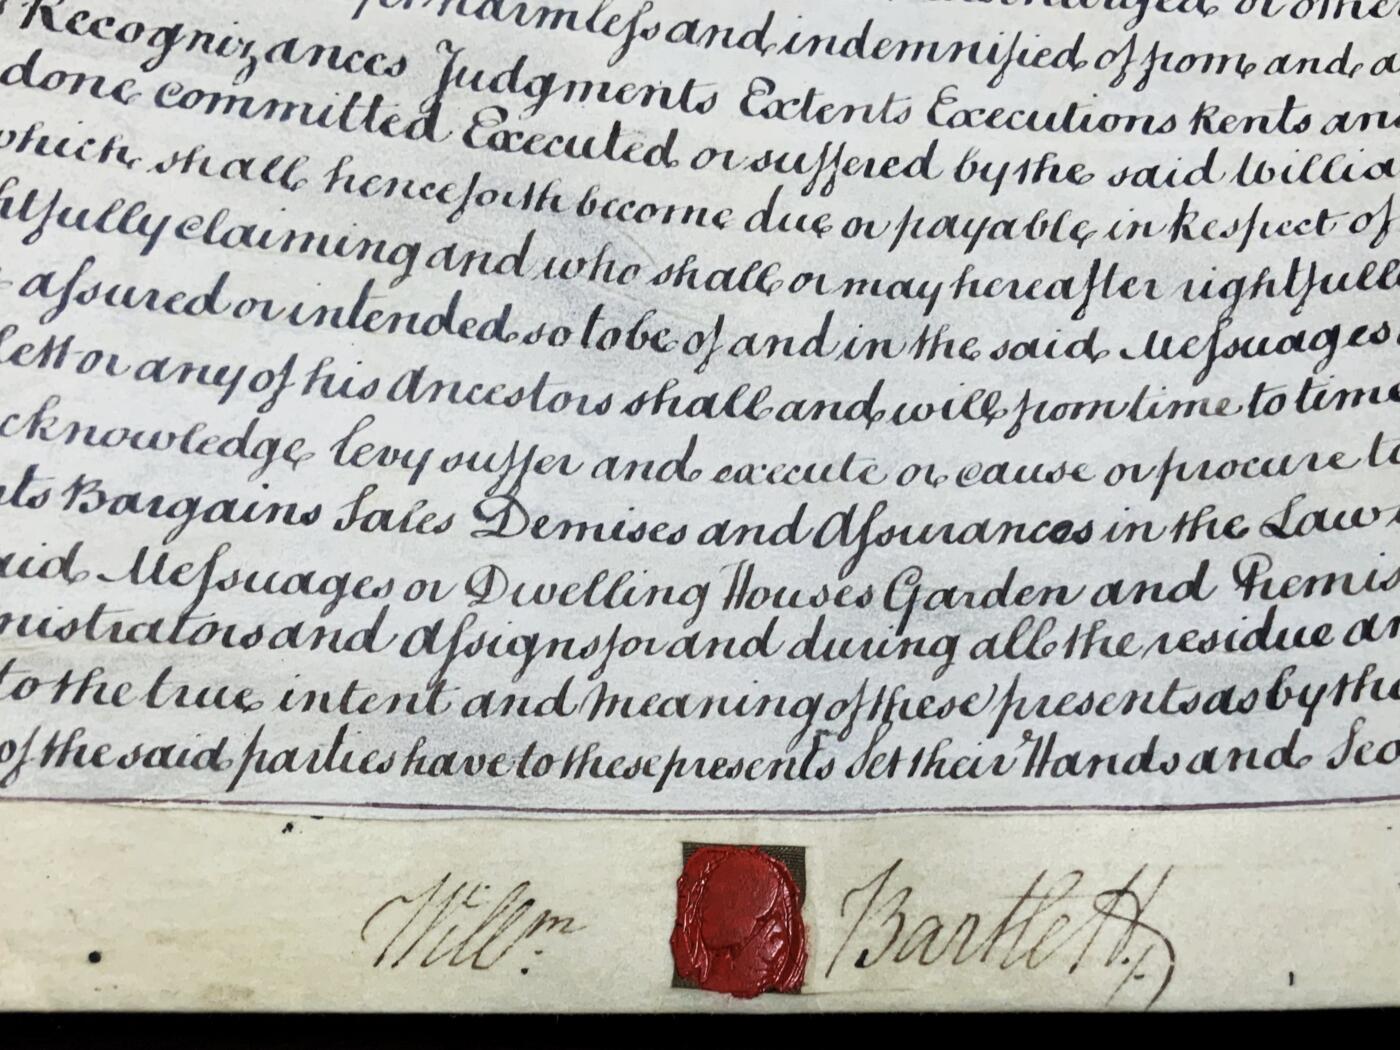 harmless and indemnified of from and
Recognizances Judgments Extents Executions Rents and
done committed Executed or suffered by the said Willia
which shall henceforth become due or payable in Respect of
htfully claiming and who shall or may hereafter rightfull
assured or intended so to be of and in the said Messuages
lett or any of his Ancestors shall and will from time to time
cknowledge levy suffer and execute or cause or procure to
nts Bargains Sales Demises and Assurances in the Law
aid Messuages or Dwelling Houses Garden and Premis
nistrators and Assigns for and during all the residue an
to the true intent and meaning of these presents as by the
of the said parties have to these presents set their Hands and Sea
Willm. Bartlett